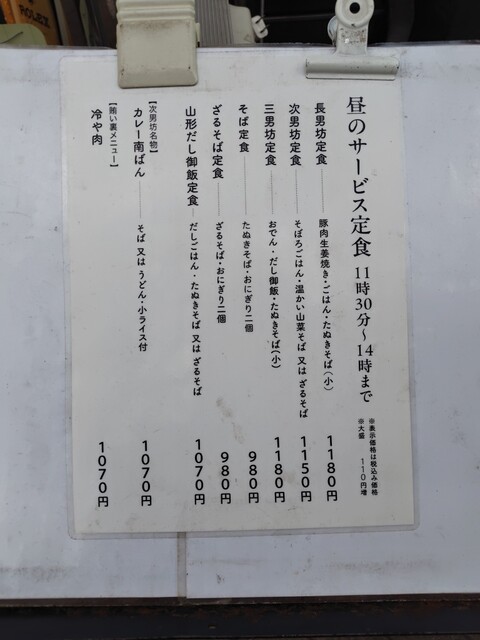 ROLEX
昼のサービス定食 11時30分～14時まで
※表示価格は税込み価格
※大盛 110円増
長男坊定食 ── 豚肉生姜焼き・ごはん・たぬきそば(小) 1180円
次男坊定食 ── そぼろごはん・温かい山菜そば 又は ざるそば 1150円
三男坊定食 ── おでん・だし御飯・たぬきそば(小) 1180円
そば定食 ── たぬきそば・おにぎり二個 980円
ざるそば定食 ── ざるそば・おにぎり二個 980円
山形だし御飯定食 ── だしごはん・たぬきそば 又は ざるそば 1070円
【次男坊名物】
カレー南ばん ── そば 又は うどん・小ライス付 1070円
【賄い裏メニュー】
冷や肉 1070円